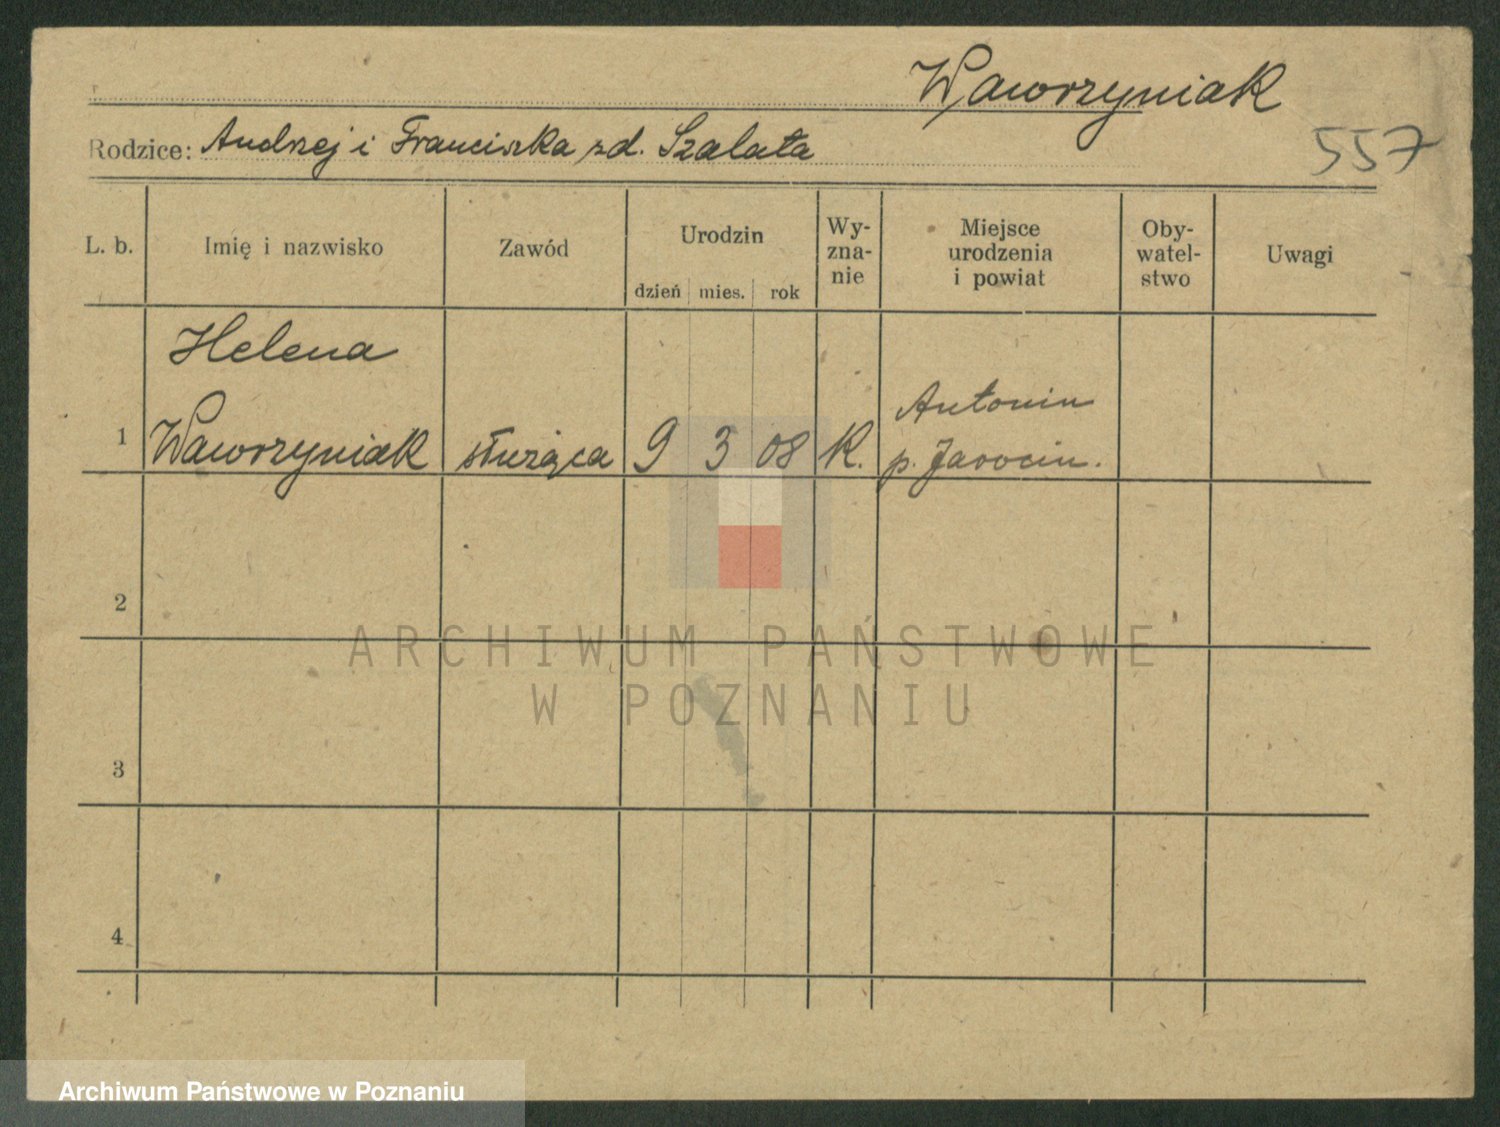 Waworzyniak
Rodzice: Andrzej i Franciszka zd. Szalata
557
L. b.
Imię i nazwisko
Zawód
Urodzin
dzień mies. rok
Wy-
zna-
nie
Miejsce
urodzenia
i powiat
Oby-
watel-
stwo
Uwagi
Helena
1 Waworzyniak służąca 9 3 08 K. Antonin
p. Jarocin.
2
3
4
ARCHIWUM PAŃSTWOWE
W POZNANIU
Archiwum Państwowe w Poznaniu